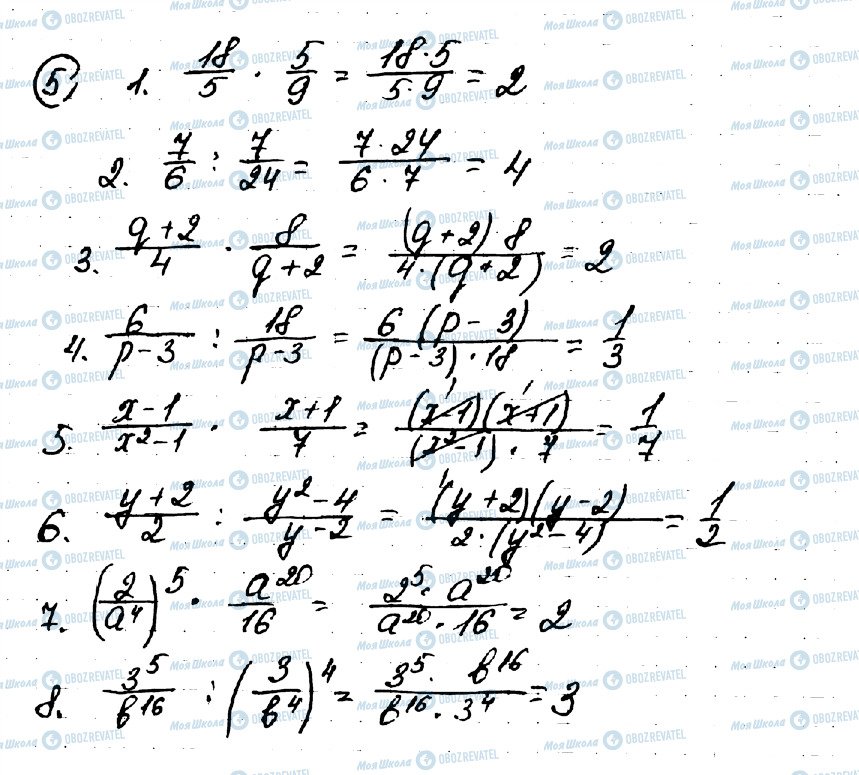 5) 1. 18/5 · 5/9 = 18·5/5·9 = 2
2. 7/6 : 7/24 = 7·24/6·7 = 4
3. q+2/4 · 8/q+2 = (q+2) 8/4·(q+2) = 2
4. 6/p-3 : 18/p-3 = 6 (p-3)/(p-3)·18 = 1/3
5. x-1/x²-1 · x+1/7 = (x-1)(x+1)/(x²-1)·7 = 1/7
6. y+2/2 : y²-4/y-2 = (y+2)(y-2)/2·(y²-4) = 1/2
7. (2/a⁴)⁵ · a²⁰/16 = 2⁵·a²⁰/a²⁰·16 = 2
8. 3⁵/b¹⁶ : (3/b⁴)⁴ = 3⁵·b¹⁶/b¹⁶·3⁴ = 3
МояШкола OBOZREVATEL